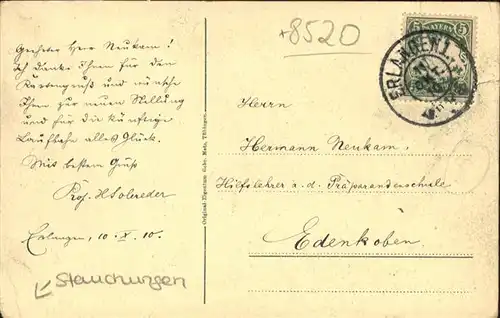 +8520
Geehrter Herr Neukam!
Ich danke Ihnen für den
Kartengruß und wünsche
Ihnen zur neuen Stellung
und für die künftige
Laufbahn alles Glück.
Mit bestem Gruß
Prof. H Solereder
Erlangen, 10. X. 10.
Stauchungen
Original-Eigentum Gebr. Metz, Tübingen.
5 BAYERN 5
ERLANGEN 1
Herrn
Hermann Neukam.
Hilfslehrer a. d. Präparandenschule
Edenkoben.